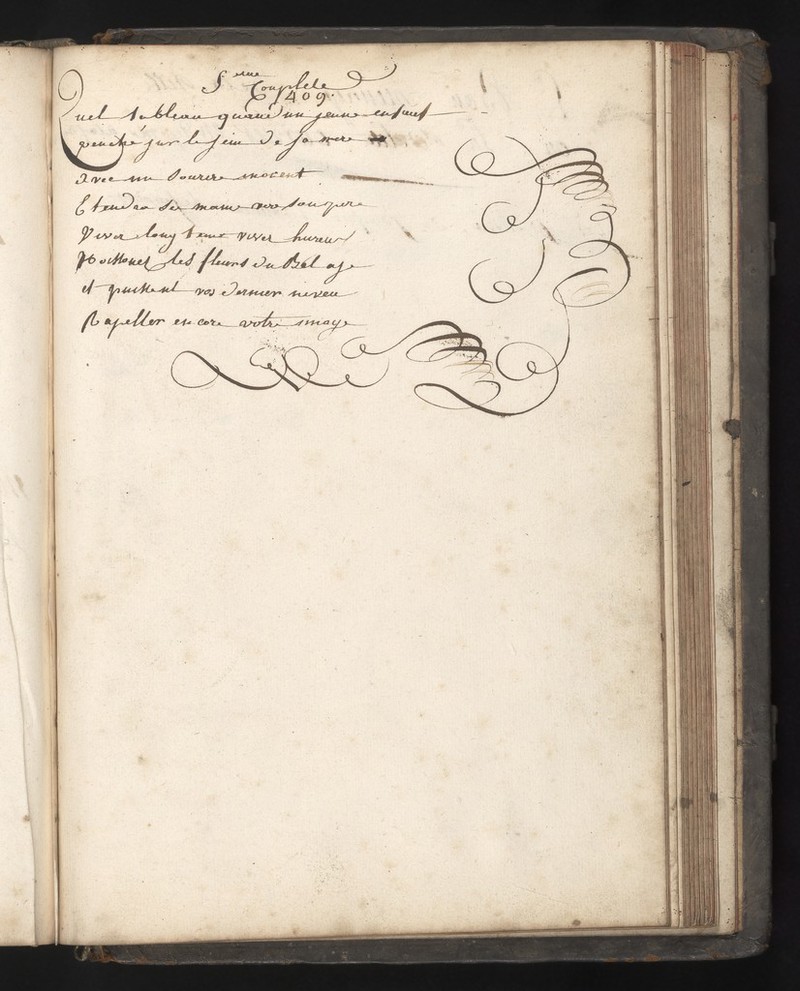 5 eme Couplete
1409.
Quel tableau quand un jeune enfant
penché sur le sein de sa mere
avec un sourire inocent
Etendra ses mains vers son pere
Viver long tems viver hureux
Moissonez les fleurs du Bel age
et puissent vos dernier neveu
Rapeller encore votre image